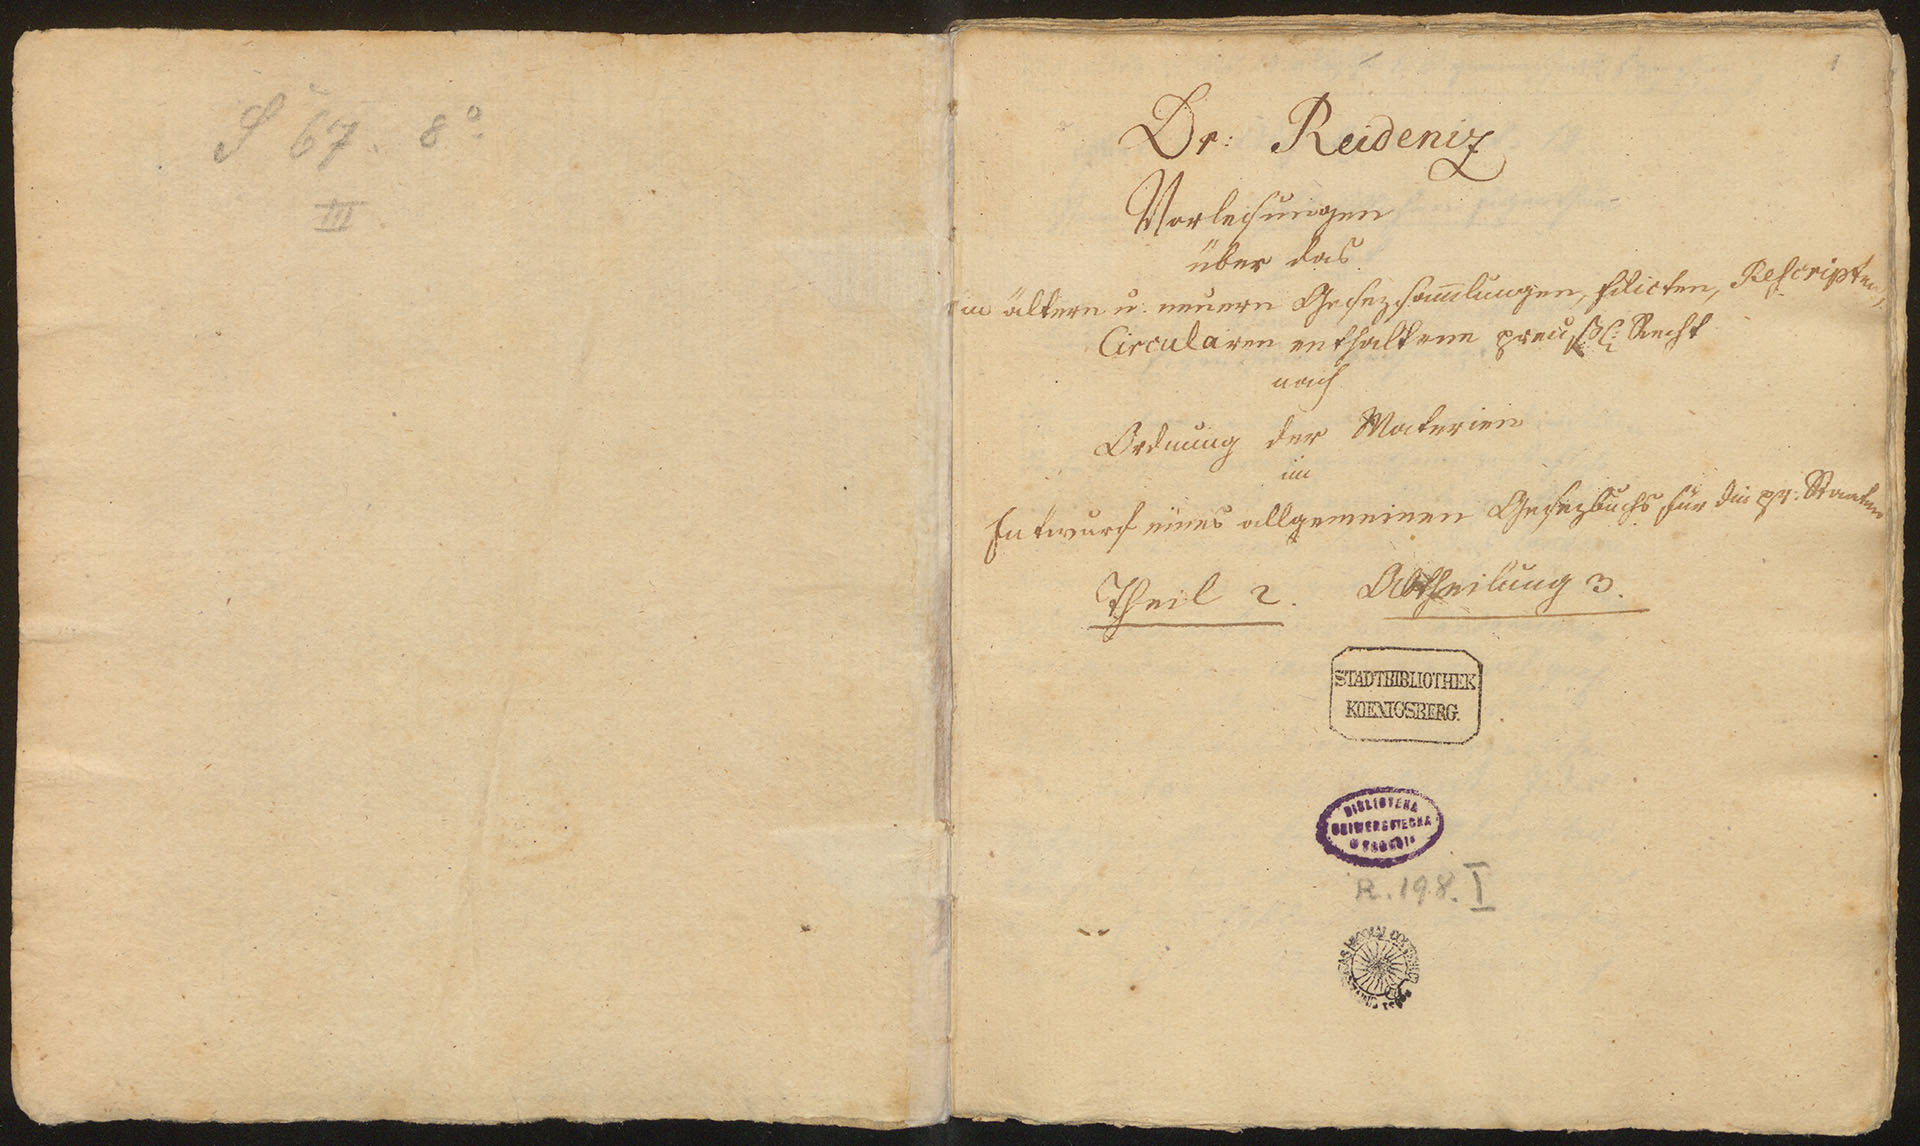 S 67. 8°
III.
1
Dr: Reideniz
Vorlesungen
über das
in ältern u. neuern Gesezsam̅lungen, Edicten, Rescripten,
Circularen enthaltene preuß: Recht
nach
Ordnung der Materien
im
Entwurf eines allgemeinen Gesezbuchs für die pr: Staaten
Theil 2. Abtheilung 3.
STADTBIBLIOTHEK
KOENIGSBERG.
BIBLIOTEKA
UNIWERSYTECKA
W TORUNIU
R. 198. I